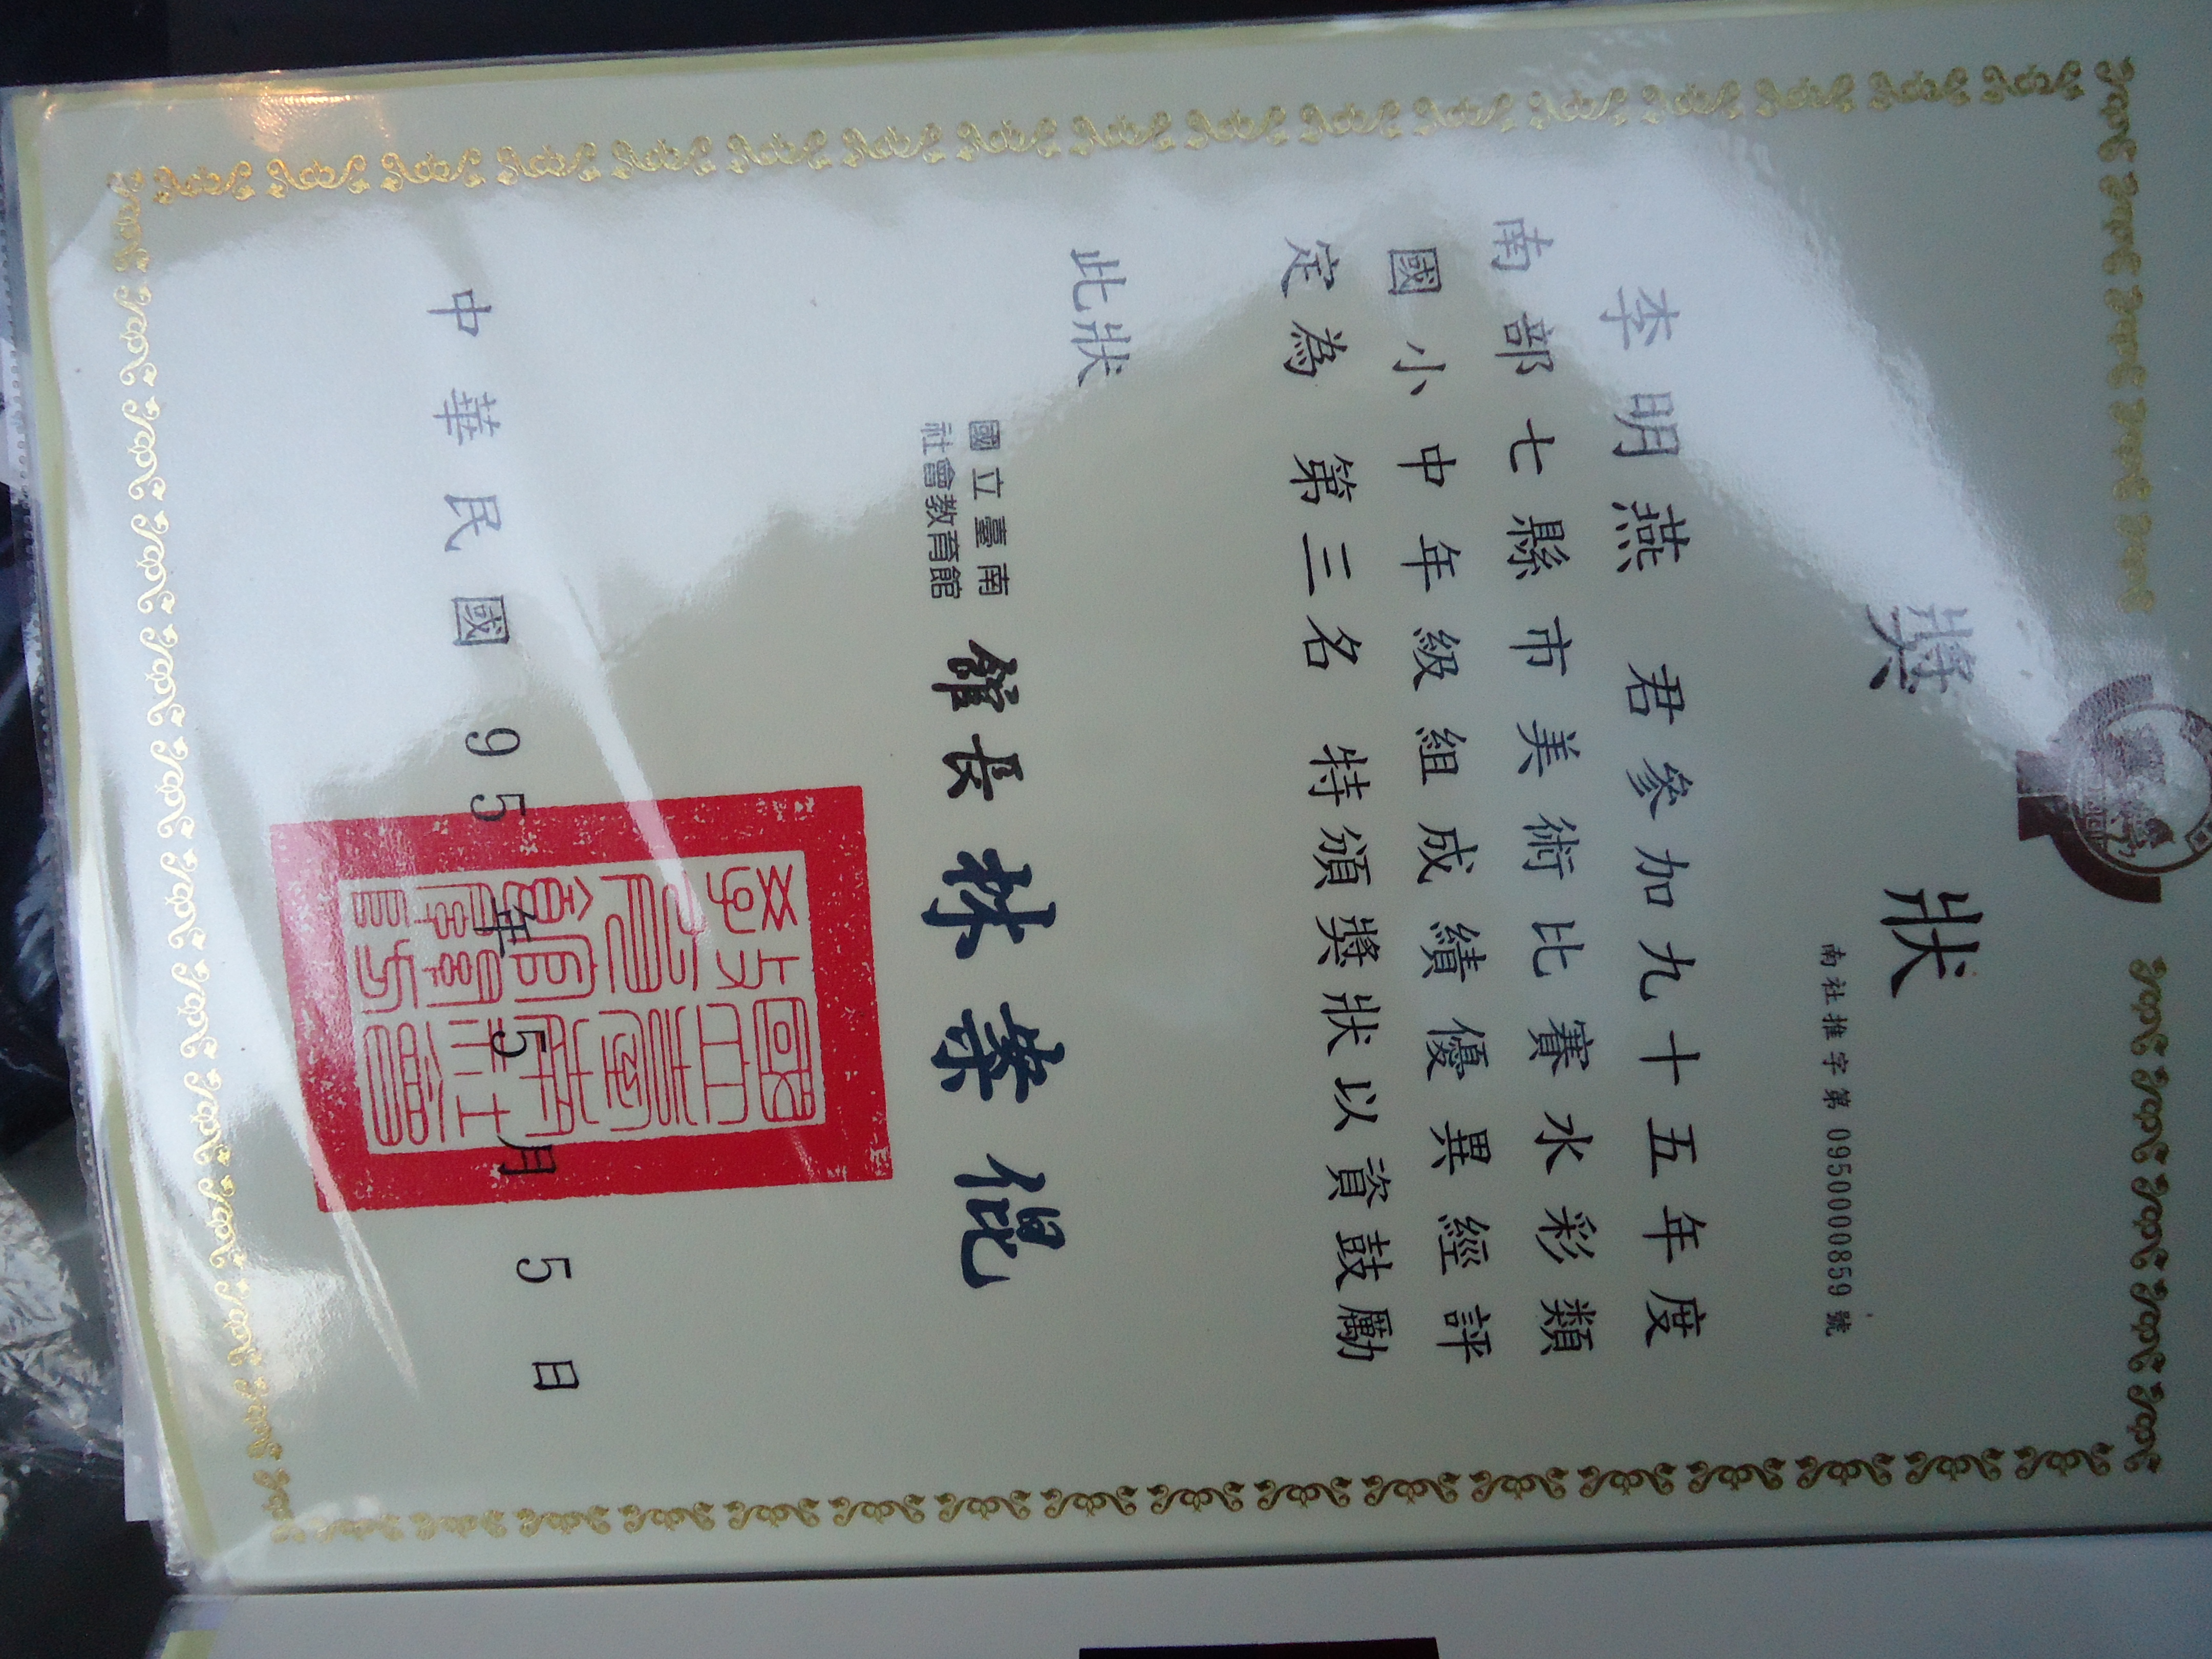 獎狀
南社推字第 0950000859 號
李明燕 君參加九十五年度
南部七縣市美術比賽水彩類
國小中年級組成績優異經評
定為 第三名 特頒獎狀以資鼓勵
此狀
國立臺南
社會教育館
館長 林崇倱
中華民國 95 年 5 月 5 日